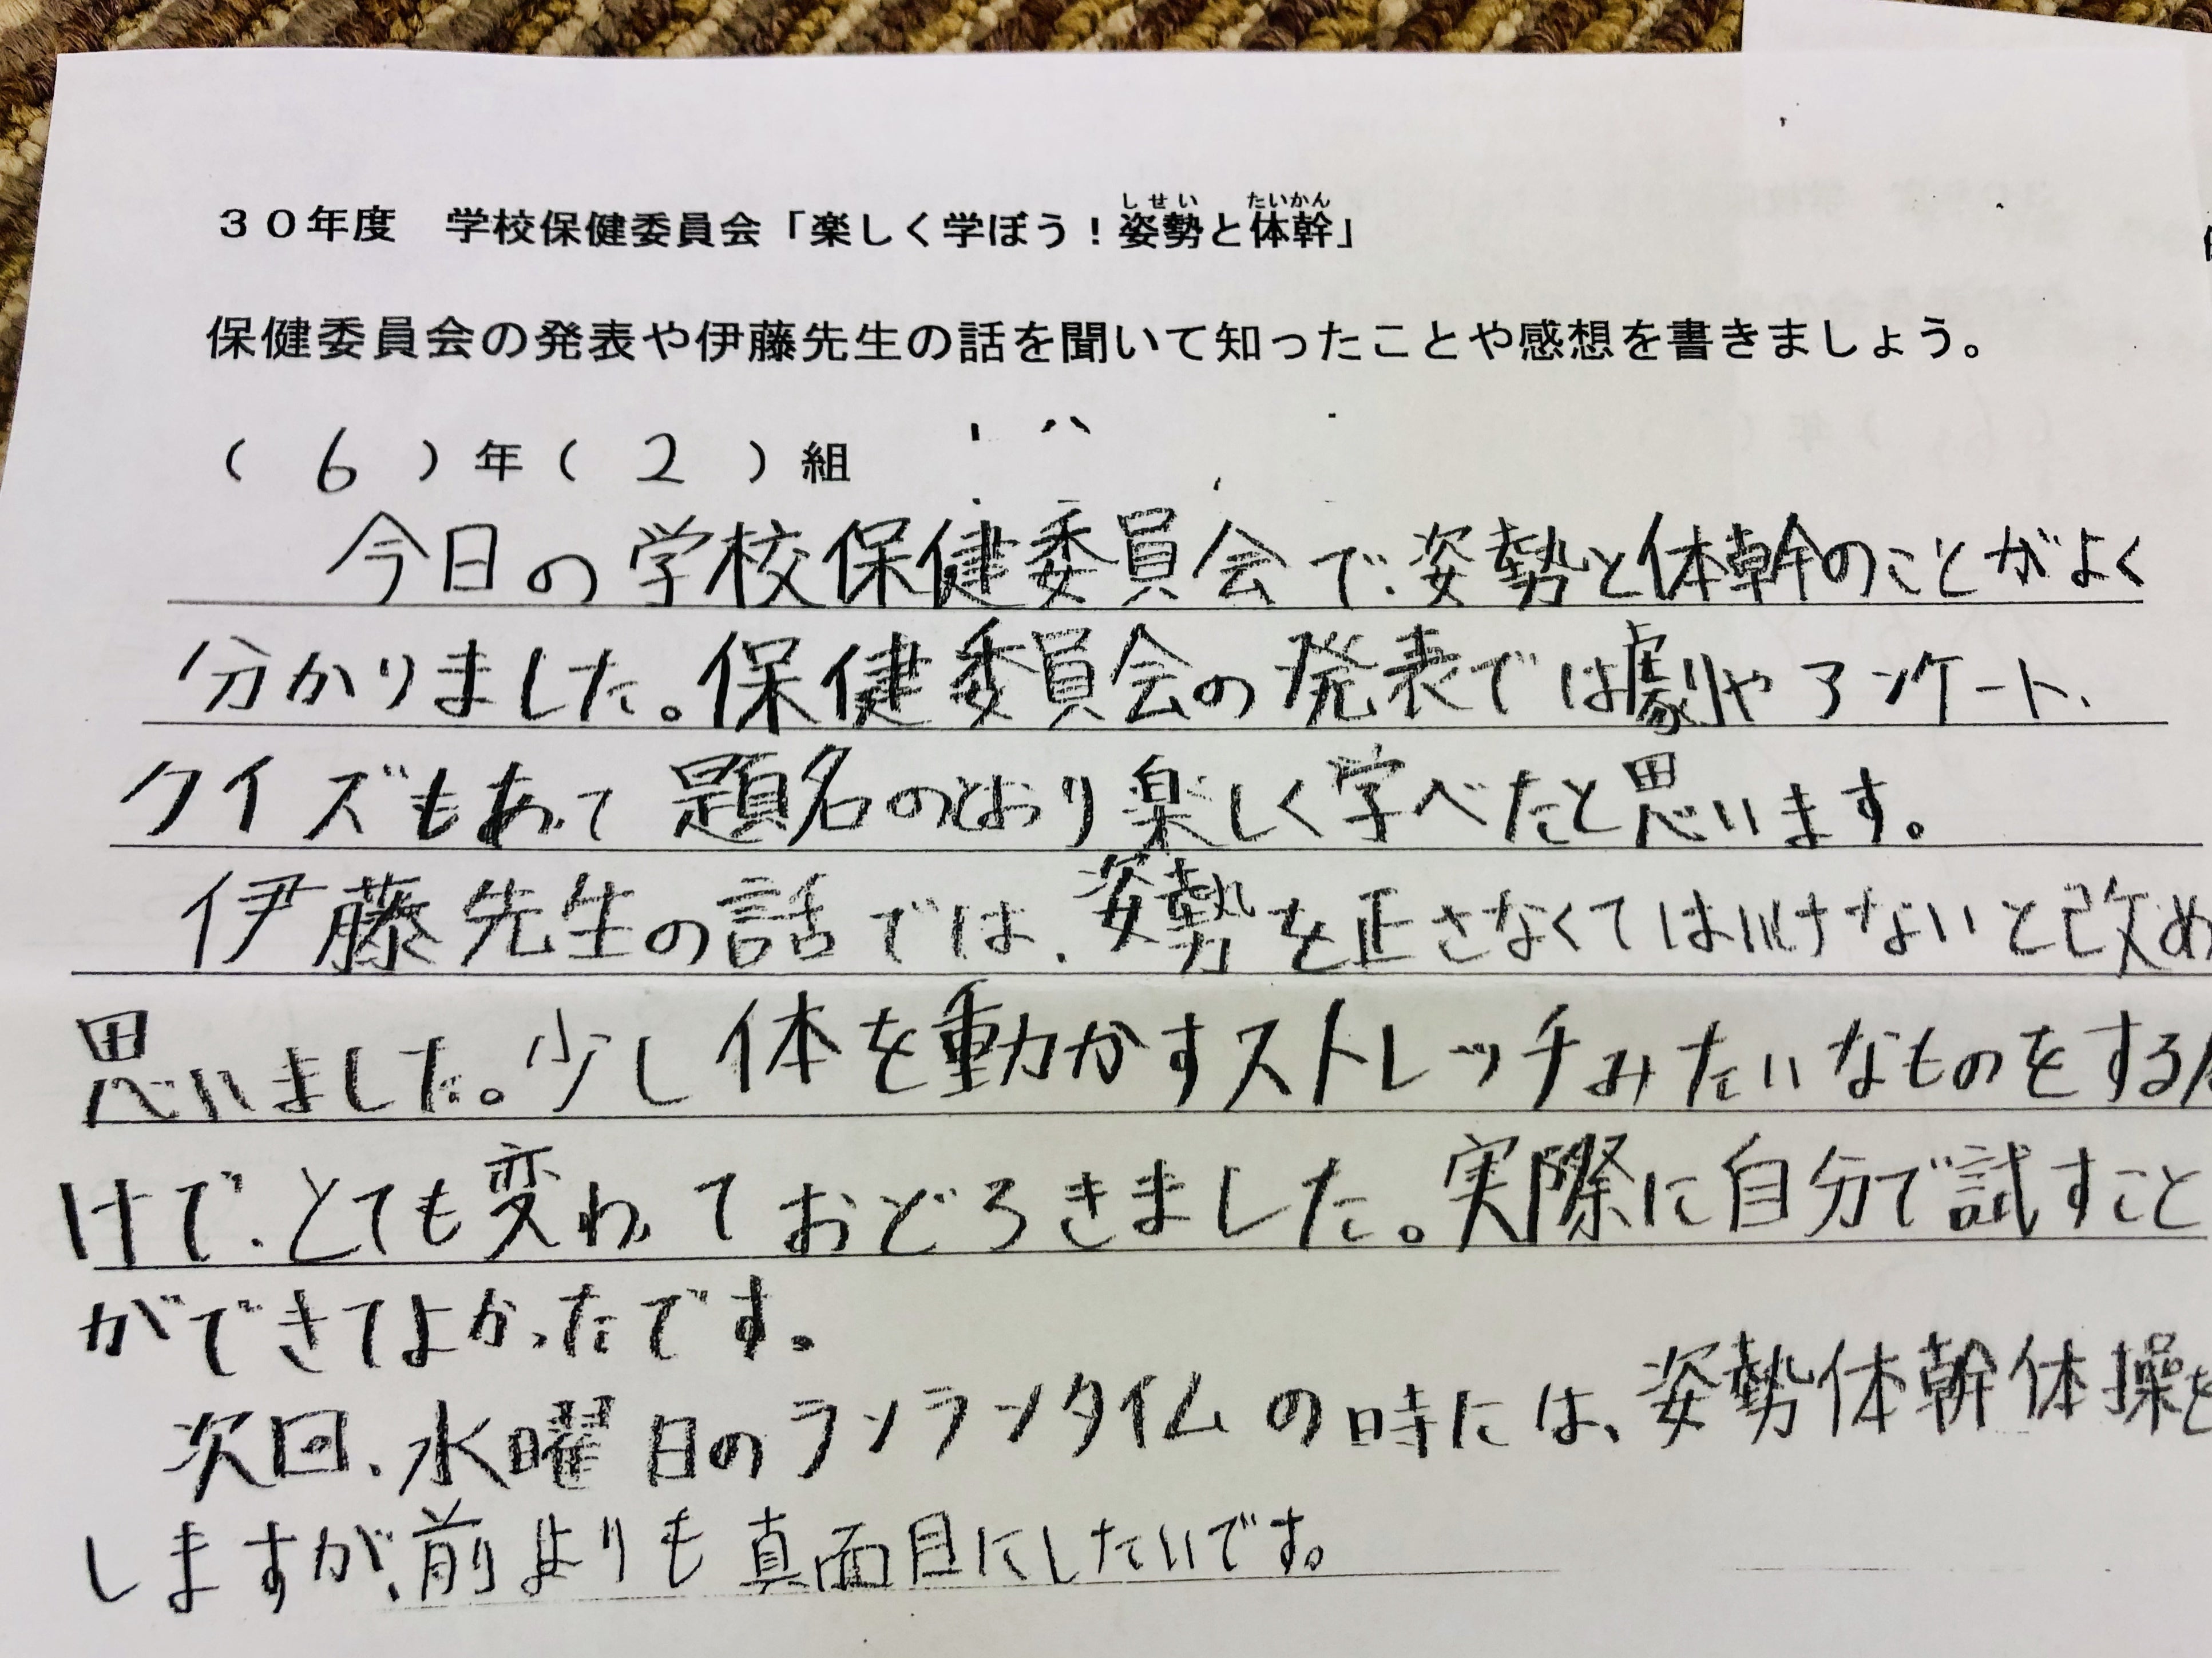 ３０年度　学校保健委員会「楽しく学ぼう！姿勢と体幹」
しせい　たいかん
保健委員会の発表や伊藤先生の話を聞いて知ったことや感想を書きましょう。
（ 6 ）年（ 2 ）組
今日の学校保健委員会で、姿勢と体幹のことがよく
分かりました。保健委員会の発表では劇やアンケート、
クイズもあって題名のとおり楽しく学べたと思います。
伊藤先生の話では、姿勢を正さなくてはいけないと改め
思いました。少し体を動かすストレッチみたいなものをする
けで、とても変わっておどろきました。実際に自分で試すこと
ができてよかったです。
次回、水曜日のランランタイムの時には、姿勢体幹体操を
しますが、前よりも真面目にしたいです。